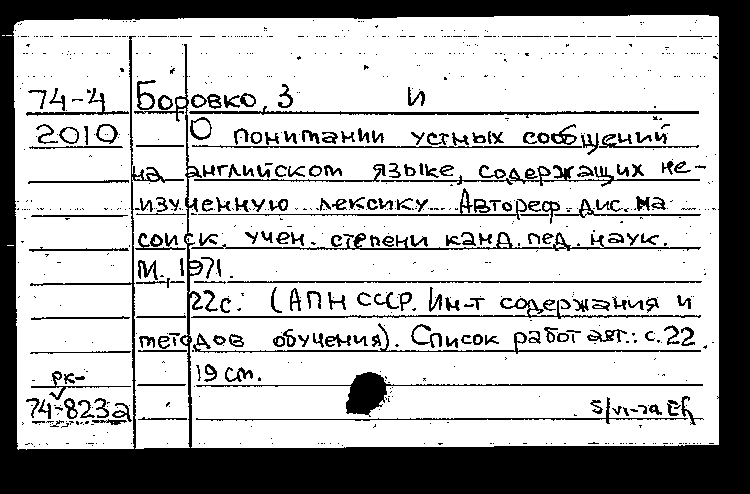 74-4 Боровко, З И
2010 О понимании устных сообщений
на английском языке, содержащих не-
изученную лексику. Автореф. дис. на
соиск. учен. степени канд. пед. наук.
М., 1971.
22с. (АПН СССР. Ин-т содержания и
методов обучения). Список работ авт.: с. 22.
19 см.
РК-
74-823а